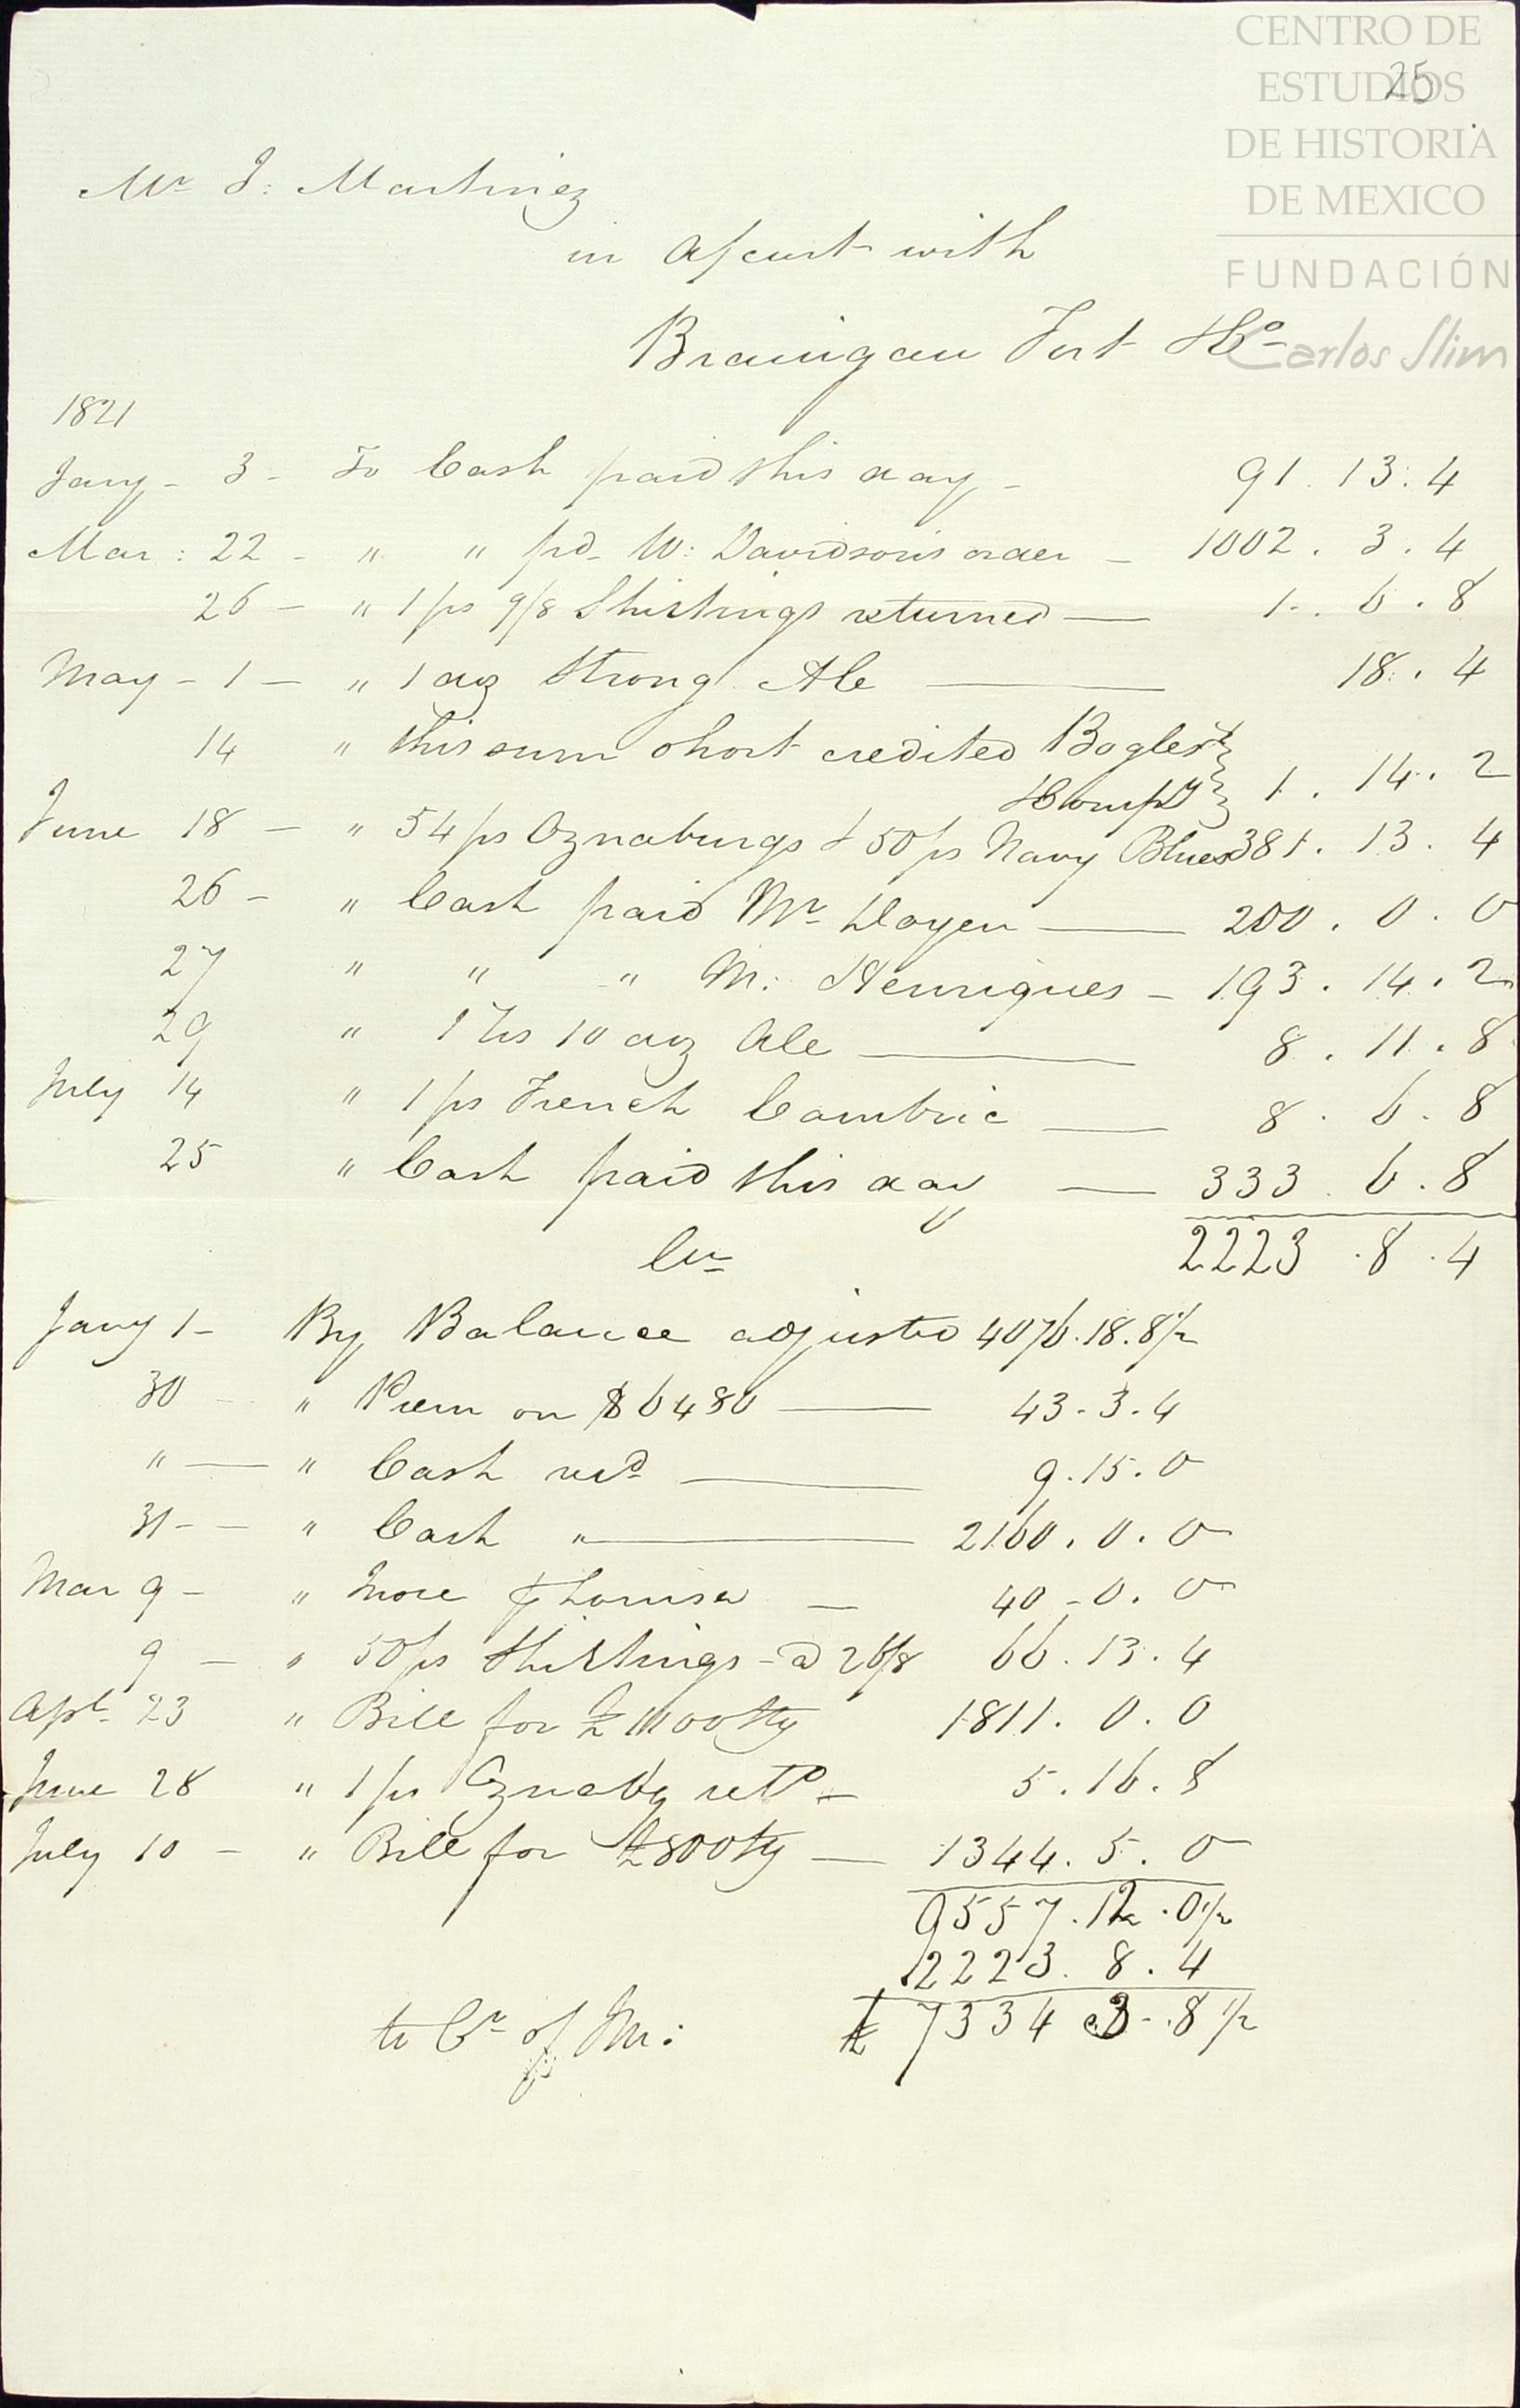 CENTRO DE
ESTUDIOS
DE HISTORIA
DE MEXICO
FUNDACIÓN
Carlos Slim
25
Mr J: Martinez
in a/curt with
Branigan Fort & Co
1821
Jany - 3 - To Cash paid this day - 91 . 13 : 4
Mar : 22 - " " pd W: Davidson's order - 1002 . 3 . 4
26 - " 1 ps 9/8 Shirtings returned - 1 . 6 . 8
May - 1 - " 1 doz Strong Ale - 18 . 4
14 " this sum short credited Bogles &
Compy } 1 . 14 . 2
June 18 - " 54 ps Oznaburgs & 50 ps Navy Blues 381 . 13 . 4
26 - " Cash paid Mr Doyen - 200 . 0 . 0
27 " " " M: Henriques - 193 . 14 . 2
29 " 1 hs 10 doz Ale - 8 . 11 . 8
July 14 " 1 ps French Cambric - 8 . 6 . 8
25 " Cash paid this day - 333 . 6 . 8
2223 . 8 . 4
Cr
Jany 1 - By Balance adjusted 4076 . 18 . 8 1/2
30 - " Prem on $6480 - 43 - 3 . 4
" - " Cash recd - 9 . 15 . 0
31 - " Cash " - 2160 . 0 . 0
Mar 9 - " More Louisa - 40 - 0 . 0
9 - " 50 ps Shirtings - @ 26/8 66 . 13 . 4
Apl 23 " Bill for £ 1100 Stg 1811 . 0 . 0
June 28 " 1 ps Oznabg retd - 5 . 16 . 8
July 10 - " Bill for £800 Stg - 1344 . 5 . 0
9557 . 12 . 0 1/2
2223 . 8 . 4
to Cr of Mr: £ 7334 . 3 - . 8 1/2